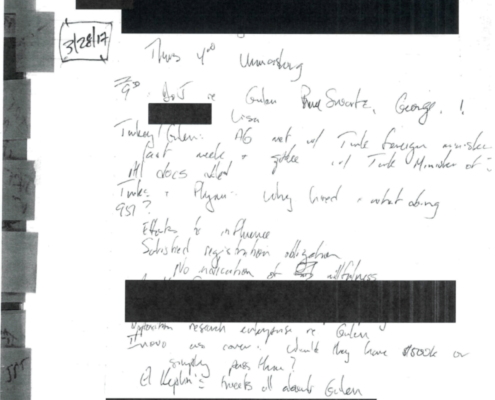 3/28/17
Thurs 4:00 Unmasking
DoJ re Gulen Bruce Swartz, George,
Lisa
Turkey/Gulen: AG met w/ Turk foreign minister
last week + spoke w/ Turk Minister of
All docs
Turkey + Flynn: Why hired + what doing
951?
Efforts to influence
Satisfied registration obligation
No indication of willfulness
Opposition research enterprise re Gulen
Inovo as cover. Would they have $500k or
simply pass thru?
El Keplin = tweets all about Gulen